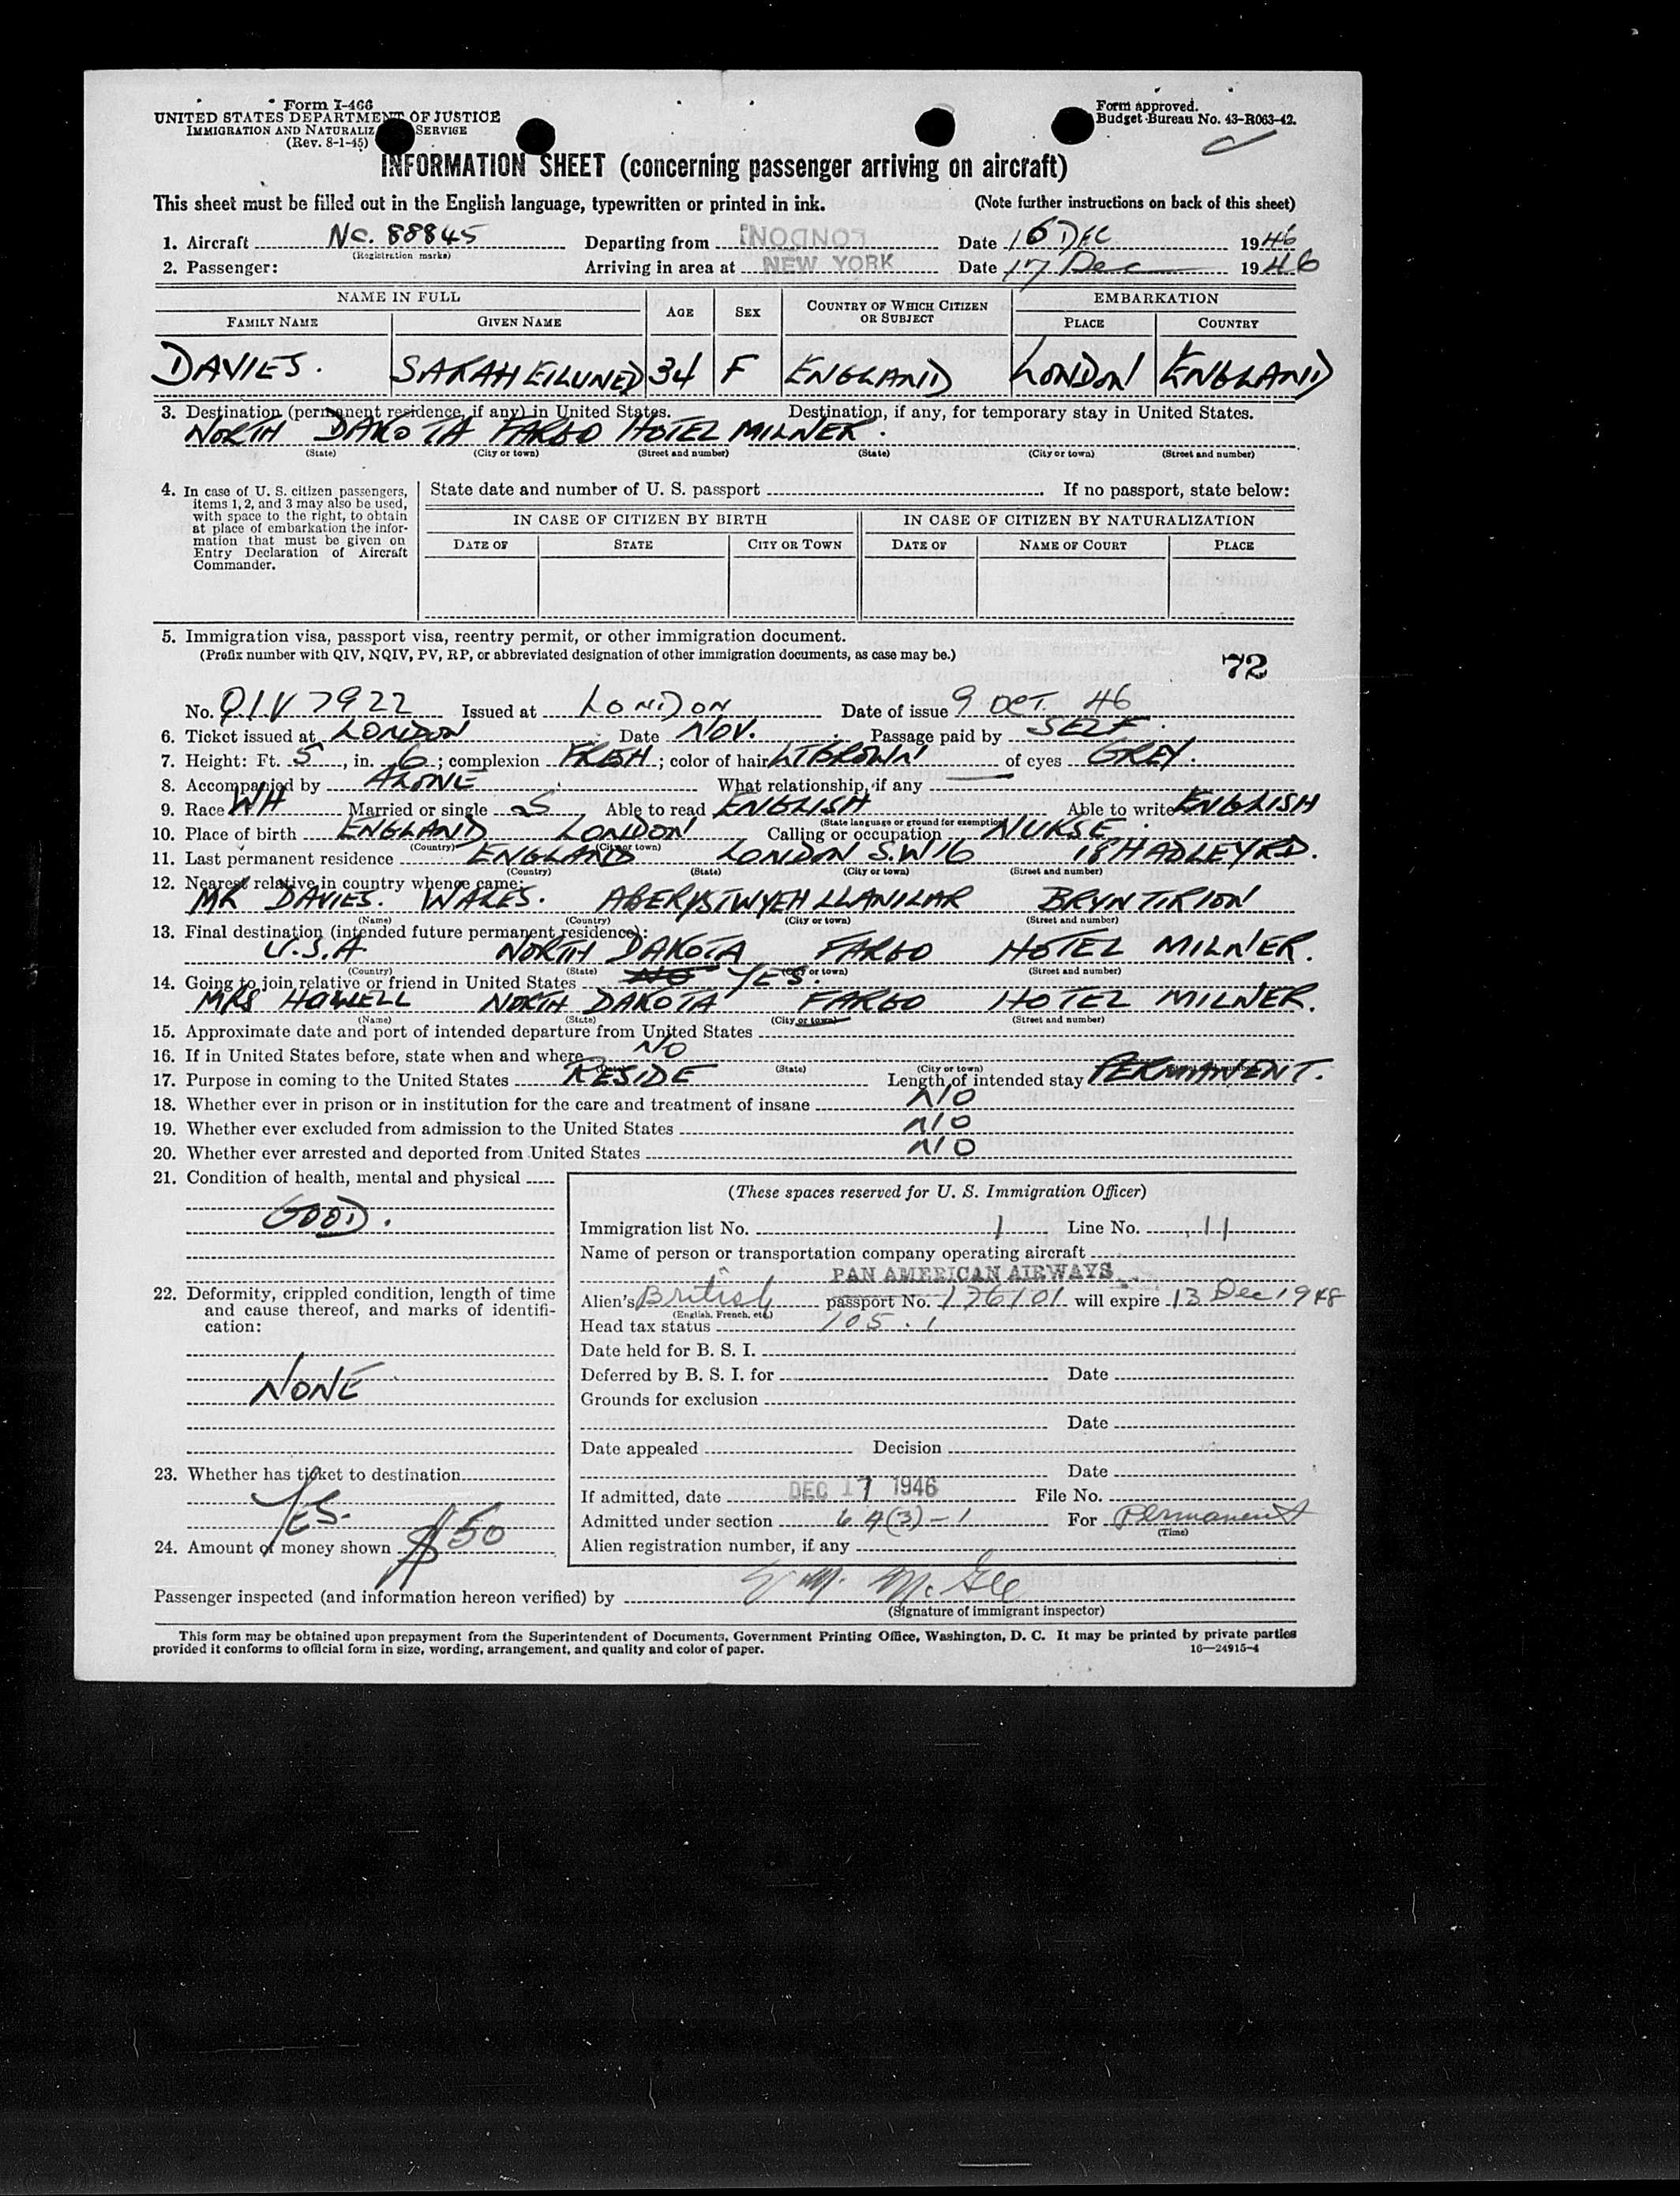 Form I-466
UNITED STATES DEPARTMENT OF JUSTICE
IMMIGRATION AND NATURALIZ SERVICE
(Rev. 8-1-45)
Form approved.
Budget Bureau No. 43-R063-42.
INFORMATION SHEET (concerning passenger arriving on aircraft)
This sheet must be filled out in the English language, typewritten or printed in ink. (Note further instructions on back of this sheet)
1. Aircraft Nc. 88845 Departing from LONDON Date 16 DEC 1946
(Registration marks)
2. Passenger: Arriving in area at NEW YORK Date 17 Dec 1946
NAME IN FULL AGE SEX COUNTRY OF WHICH CITIZEN OR SUBJECT EMBARKATION
FAMILY NAME GIVEN NAME PLACE COUNTRY
DAVIES. SARAH EILUNED 34 F ENGLAND LONDON ENGLAND
3. Destination (permanent residence, if any) in United States. Destination, if any, for temporary stay in United States.
NORTH DAKOTA FARGO HOTEL MILNER.
(State) (City or town) (Street and number) (State) (City or town) (Street and number)
4. In case of U. S. citizen passengers, items 1, 2, and 3 may also be used, with space to the right, to obtain at place of embarkation the information that must be given on Entry Declaration of Aircraft Commander.
State date and number of U. S. passport . If no passport, state below:
IN CASE OF CITIZEN BY BIRTH IN CASE OF CITIZEN BY NATURALIZATION
DATE OF STATE CITY OR TOWN DATE OF NAME OF COURT PLACE
5. Immigration visa, passport visa, reentry permit, or other immigration document.
(Prefix number with QIV, NQIV, PV, RP, or abbreviated designation of other immigration documents, as case may be.)
72
No. QIV 7922 Issued at LONDON Date of issue 9 OCT. 46
6. Ticket issued at LONDON Date NOV. Passage paid by SELF.
7. Height: Ft. 5, in. 6; complexion FRESH; color of hair LTBROWN of eyes GREY.
8. Accompanied by ALONE What relationship, if any —
9. Race WH Married or single S Able to read ENGLISH Able to write ENGLISH
(State language or ground for exemption)
10. Place of birth ENGLAND LONDON Calling or occupation NURSE.
(Country) (City or town)
11. Last permanent residence ENGLAND LONDON S.W16 18 HADLEY RD.
(Country) (State) (City or town) (Street and number)
12. Nearest relative in country whence came:
MR DAVIES. WALES. ABERYSTWYEH LLANILAR BRYNTIRION
(Name) (Country) (City or town) (Street and number)
13. Final destination (intended future permanent residence):
U.S.A NORTH DAKOTA FARGO HOTEL MILNER.
(Country) (State) (City or town) (Street and number)
14. Going to join relative or friend in United States NO YES.
MRS HOWELL NORTH DAKOTA FARGO HOTEL MILNER.
(Name) (State) (City or town) (Street and number)
15. Approximate date and port of intended departure from United States
16. If in United States before, state when and where NO
(State) (City or town)
17. Purpose in coming to the United States RESIDE Length of intended stay PERMANENT.
18. Whether ever in prison or in institution for the care and treatment of insane NO
19. Whether ever excluded from admission to the United States NO
20. Whether ever arrested and deported from United States NO
21. Condition of health, mental and physical
GOOD.
22. Deformity, crippled condition, length of time and cause thereof, and marks of identification:
NONE
23. Whether has ticket to destination
YES.
24. Amount of money shown $50
(These spaces reserved for U. S. Immigration Officer)
Immigration list No. 1 Line No. 11
Name of person or transportation company operating aircraft
PAN AMERICAN AIRWAYS
Alien's British passport No. 176101 will expire 13 Dec 1948
(English, French, etc.)
Head tax status 105.1
Date held for B. S. I.
Deferred by B. S. I. for Date
Grounds for exclusion
Date
Date appealed Decision
Date
If admitted, date DEC 17 1946 File No.
Admitted under section 6 A(3)-1 For Permanent
(Time)
Alien registration number, if any
Passenger inspected (and information hereon verified) by E M. McGee
(Signature of immigrant inspector)
This form may be obtained upon prepayment from the Superintendent of Documents, Government Printing Office, Washington, D. C. It may be printed by private parties
provided it conforms to official form in size, wording, arrangement, and quality and color of paper. 16—24915-4